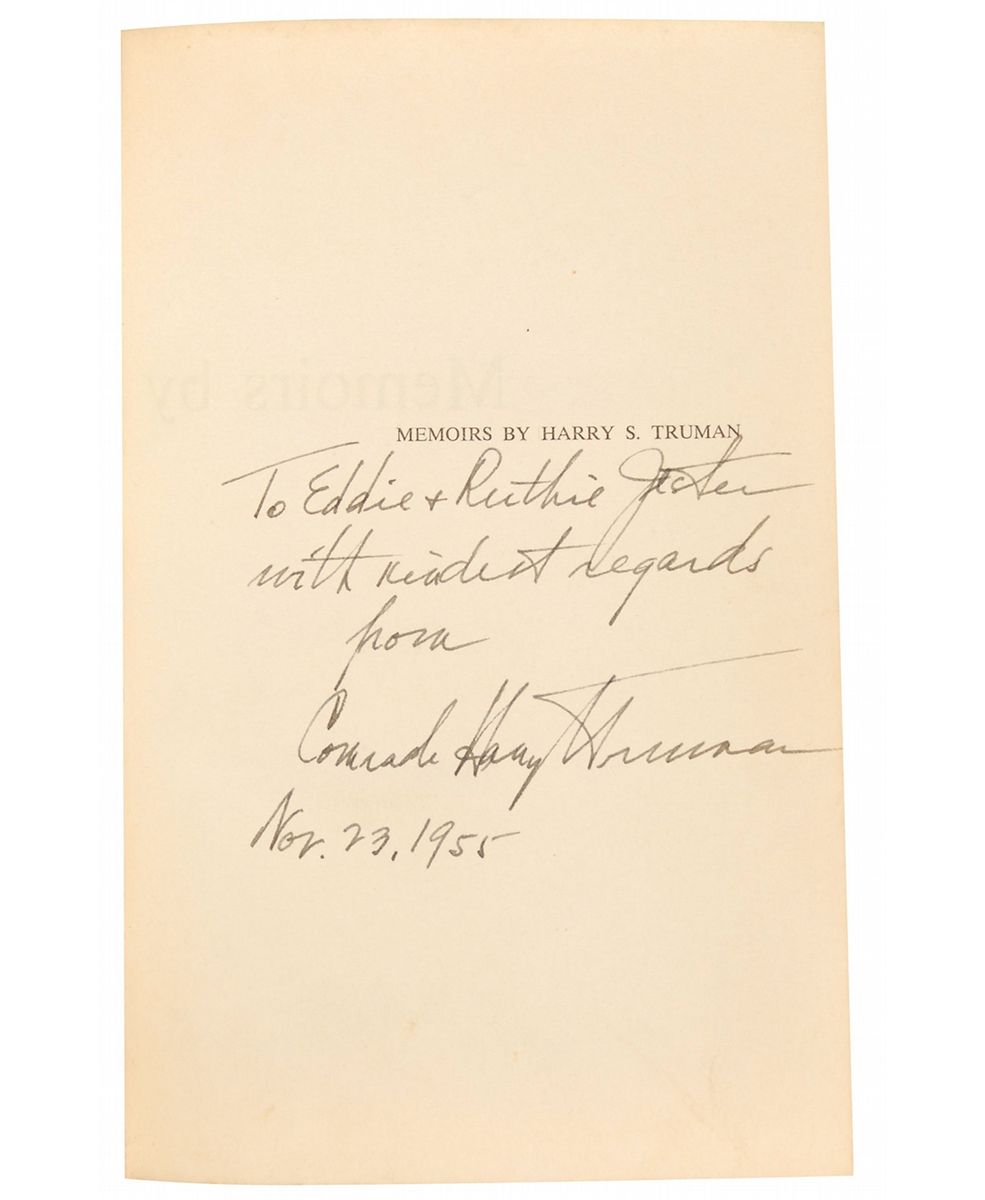 Memoirs by
MEMOIRS BY HARRY S. TRUMAN
To Eddie + Ruthie Jester
with kindest regards
from
Comrade Harry Truman
Nov. 23, 1955